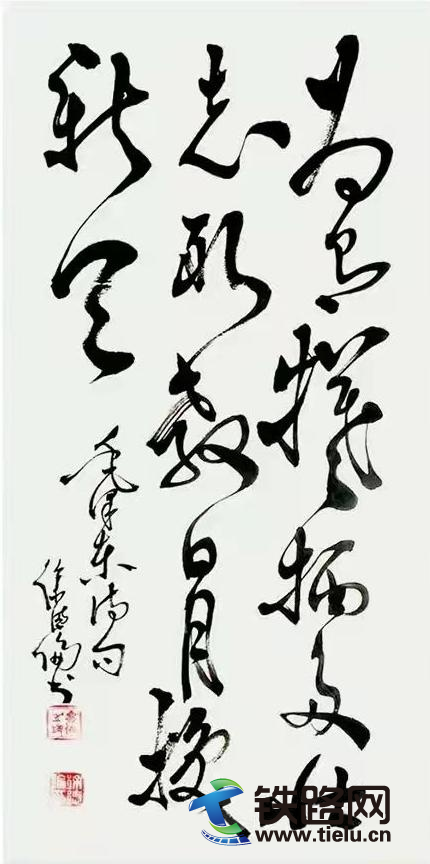 为有犧牲多壮
志敢教日月换
新天
毛泽东诗句
徐
书
铁路网
www.tielu.cn